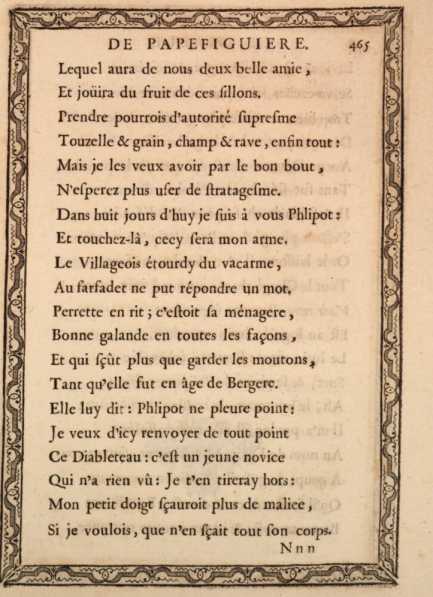 DE PAPEFIGUIERE. 465
Lequel aura de nous deux belle amie,
Et joüira du fruit de ces sillons.
Prendre pourrois d'autorité supresme
Touzelle & grain, champ & rave, enfin tout:
Mais je les veux avoir par le bon bout,
N'esperez plus user de stratagesme.
Dans huit jours d'huy je suis à vous Phlipot:
Et touchez-là, cecy sera mon arme.
Le Villageois étourdy du vacarme,
Au farfadet ne put répondre un mot.
Perrette en rit; c'estoit sa ménagere,
Bonne galande en toutes les façons,
Et qui sçût plus que garder les moutons,
Tant qu'elle fut en âge de Bergere.
Elle luy dit: Phlipot ne pleure point:
Je veux d'icy renvoyer de tout point
Ce Diableteau: c'est un jeune novice
Qui n'a rien vû: Je t'en tireray hors:
Mon petit doigt sçauroit plus de malice,
Si je voulois, que n'en sçait tout son corps.
Nnn